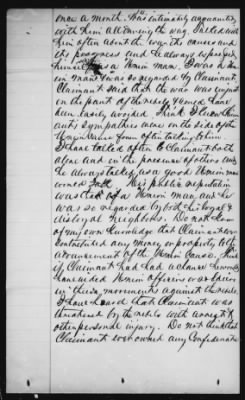 once a month. Was intimately acquainted
with him all during the war. Talked with
him often about the war, its causes and
its progress and he always expressed
himself as a Union man. I was a Union
man & was so regarded by Claimant.
Claimant said that the war was unjust
on the part of the rebels & could have
been easily avoided. Think Claimants
sympathies were on the side of the
Union cause from often talking to him
I have talked often to Claimant both
alone and in the presence of others and
he always talked as a good Union man
would talk. His public reputation
was that of a Union man and he
was so regarded by both his loyal &
disloyal neighbors. Do not know
of my own knowledge that Claimant ever
contributed any money or property to the
advancement of the Union cause. Think
if Claimant had had a chance he would
have aided Union officers & soldiers
in their movements against the rebels.
I have heard that Claimant was
threatened by the rebels with arrest &
other personal injury. Do not think that
Claimant ever owned any Confederate